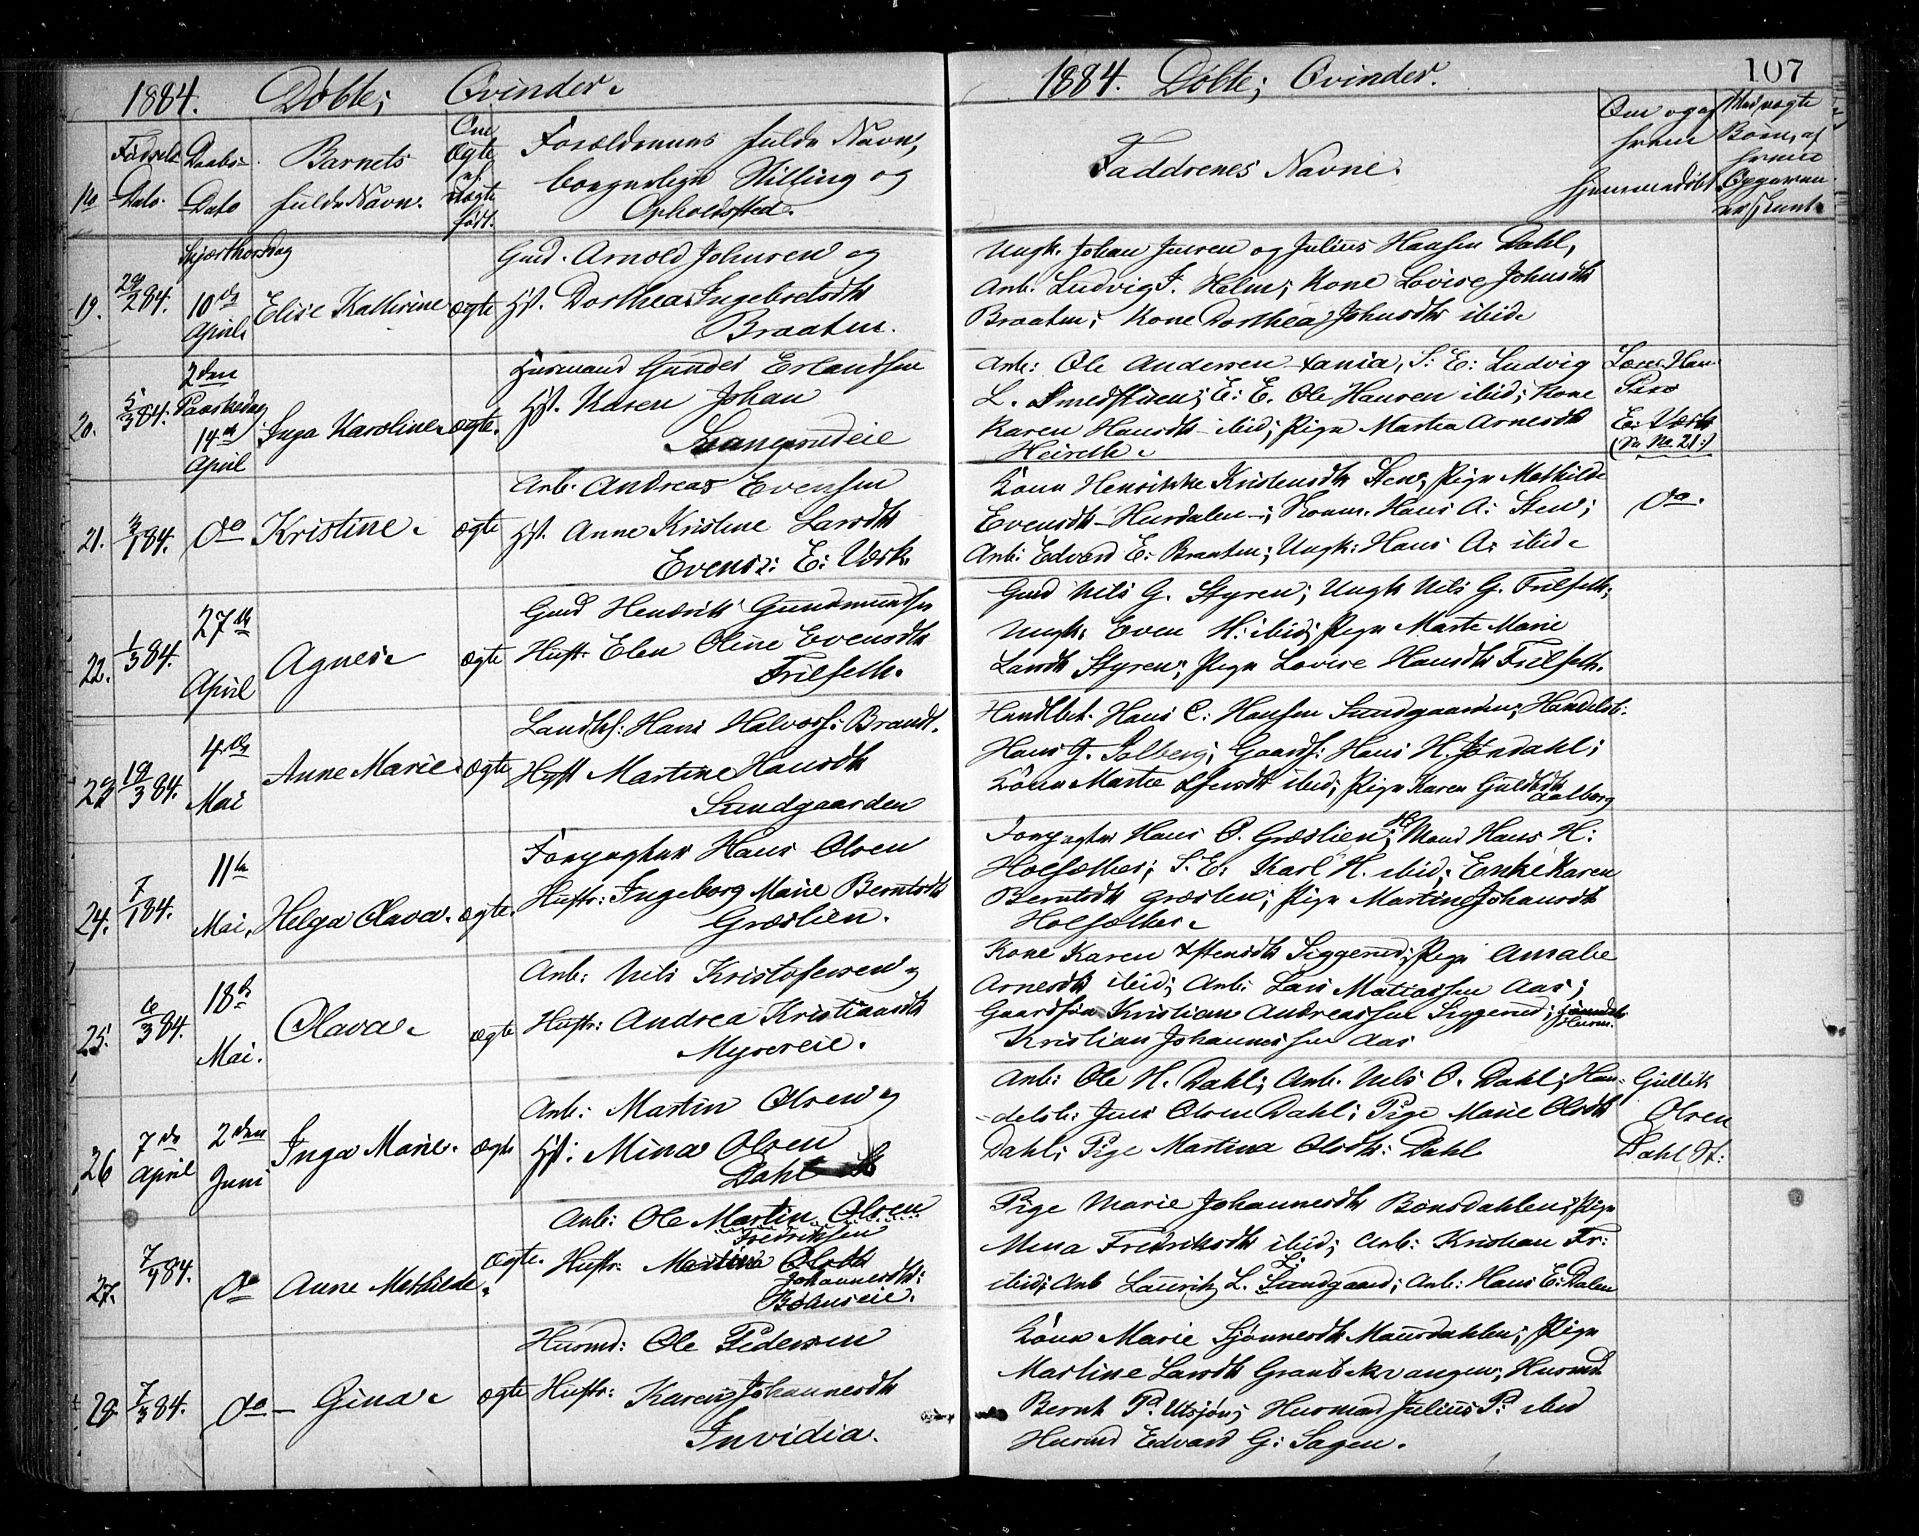 1884. Døbte; Qvinder.
1884. Døbte; Qvinder. 107
No Fødsels Dato. Daabs- Dato Barnets fulde Navn. Om Ægte el. uægte født.
Forældrenes fulde Navn,
borgerlige Stilling og
Opholdssted.
Faddernes Navne.
Om og af hvem hjemmedøbt
19. 29/2 84. Skjærthorsdag 10de April Elise Kathrine ægte
Gmd. Arnold Johnsen og
Hst. Dorthea Ingebretsdtr
Braaten.
Ungk. Johan Jensen og Julius Hansen Dahl,
Arb. Ludvig J. Holm; Kone Lovise Johnsdtr
Braaten; Kone Dorthea Johnsdtr ibid.
20. 5/3 84. 2den Paaskedag 14de April Inga Karoline. ægte.
Husmand Gunder Erlandsen
Hst. Karen Johan
Arb: Ole Andersen S: E: Ludvig
L. Smedstuen; E: E. Ole Hansen ibid; Kone
Karen Hansdtr ibid; Pige Martea Arnesdtr
E: Værk
(Se No 21:)
21. 3/1 84. do Kristine. ægte
Arb. Andreas Evensen
Hst. Anne Kristine Larsdtr
Evens: E: Værk.
Kone Henrikke Kristensdtr Sten; Pige Mathilde
Evensdtr Hurdalen; Hans A: Sten;
Arb: Edvard E: Braaten; Ungk: Hans A: ibid.
do.
22. 1/3 84. 27de April Agnes. ægte
Gmd Hendrik Gundmundsen
Hustr. Elen Oline Evensdtr
Frilseth.
Gmd Nils G. Styren; Ungk Nils G. Frilseth;
Ungk: Even H. ibid; Pige Marte Marie
Larsdtr Styren; Pige Lovise Hansdtr Frilseth.
23 19/3 84. 4de Mai Anne Marie. ægte
Landh: Hans Halvors: Brandt.
Hst Martine Hansdtr
Sundgaarden
Handlbet. Hans C: Hansen Sundgaarden; Handelsb:
Hans G. Solberg; Gaards: Hans H. Jøndahl;
Kone Martea ibid; Pige Karen Gulbdtr
Aalborg
24. 7/1 84. 11te Mai. Helga Olava. ægte.
Forpagter Hans Olsen
Hustr: Ingeborg Marie Berntsdtr
Græslien.
Forpagter Hans O. Græslien; Mand Hans H:
Holsæther; S. E: Karl H. ibid; Enke Karen
Berntsdtr Græslien; Pige Martine Johansdtr
Holsæther.
25. 6/3 84. 18de Mai. Olava. ægte
Arb: Nils Kristofersen og
Hustr: Andrea Kristiansdtr
Myrereie.
Kone Karen Siggerud; Pige Amalie
Arnesdtr ibid; Arb: Lars Matiassen Aas;
Gaardsøn Kristian Andreassen Siggerud;
Kristian Johannessen Aas
26 7de April 2den Juni Inga Marie. ægte
Arb: Martin Olsen og
Hst: Mina Olsen
Dahl
Arb: Ole H. Dahl; Arb. Nils O. Dahl; Han-
delsb: Jens Olsen Dahl; Pige Marie Olsdtr
Dahl; Pige Martina Olsdtr: Dahl
Gullik
Olsen
Dahl St:
27. 7/4 84. do Anne Mathilde. ægte.
Arb: Ole Martin Olsen
Fredriksen
Hustr. Martina Olsdtr
Johannesdtr:
Bøhnseie.
Pige Marie Johannesdtr Bønsdahlen; Pige
Mina Fredriksdtr ibid; Arb: Kristian Fr:
ibid; Arb Lauritz L. Sundgaard; Arb: Hans E: Dalen
28 7/3 84. do Gina. ægte
Husmd: Ole Pedersen
Hustr: Karen Johannesdtr
Invidia.
Kone Marie Mansdahlen; Pige
Martine Larsdtr Granbekvangen; Husmd.
Bernt P. Utsjøn; Husmand Julius P: ibid
Husmd Edvard G: Sagen.